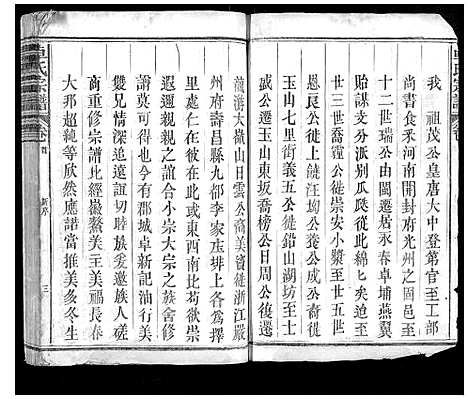 我　祖茂公皇唐大中登第官至工部
尚書食釆河南開封府光州之固邑至
十二世瑞公由閩遷居永春卓埔燕翼
貽謀支分派別瓜瓞從此綿匕矣迨至
廿三世喬種公徙崇安小漿至廿五世
恩良公徙上饒江坳公養公成公裔
玉山七里街義五公徙鉛山湖坊至十
盛公遷玉山東坂喬榜公日後公復遷
龍游大嶺山日雲公裔美資徙浙江嚴
州府壽昌縣九都李家庄排上各爲擇
里處仁在彼在此或東西南北苟欲崇
遐邇親親之誼合小宗大宗之族舍修
譜莫可得也今有郡城卓新記油行美
雙兄情深追遠誼切睦族爰邀族人磋
商重修宗譜比經徽鰲美王美福長春
大邦超純等欣然應諾當推美多冬生
氏宗譜
卷首
新序
三